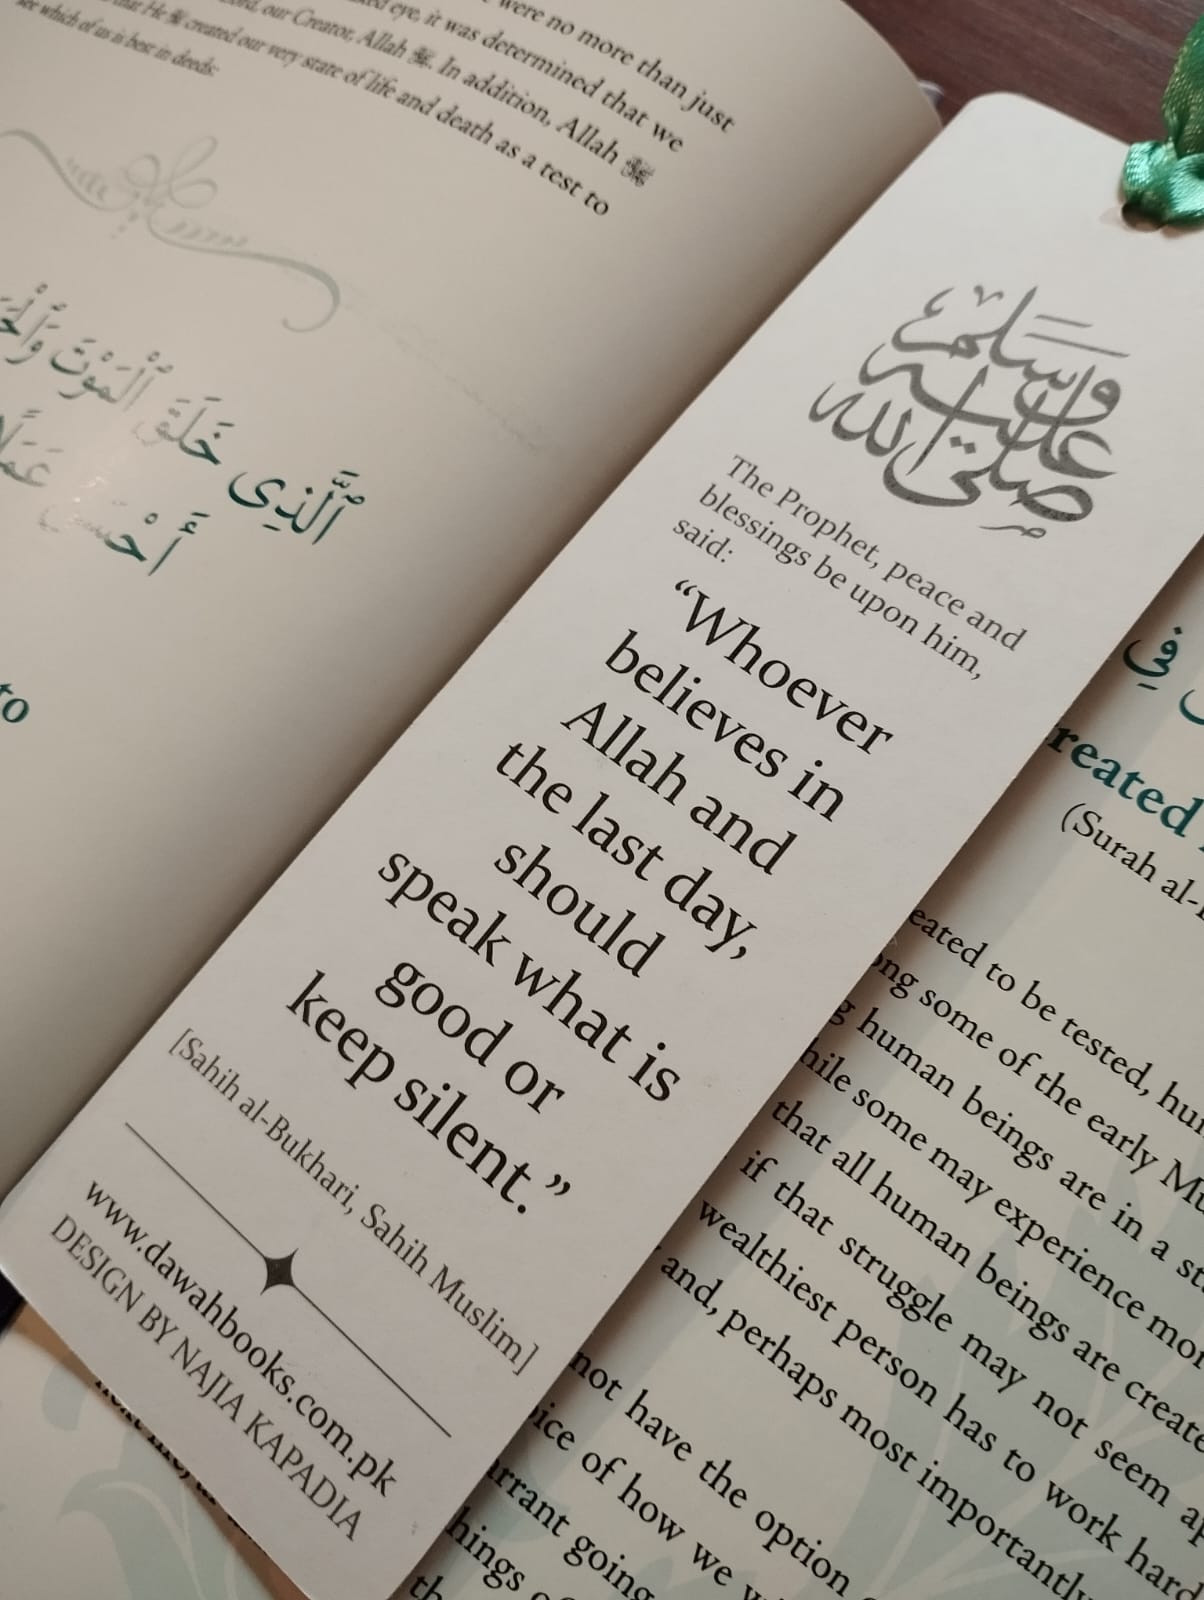 were no more than just
eye, it was determined that we
our Creator, Allah ﷻ. In addition, Allah ﷻ
that He ﷻ created our very state of life and death as a test to
see which of us is best in deeds:
ٱلَّذِى خَلَقَ ٱلْمَوْتَ
أَحْسَنُ عَمَلًا
to
صلى الله
عليه
وسلم
The Prophet, peace and
blessings be upon him,
said:
“Whoever
believes in
Allah and
the last day,
should
speak what is
good or
keep silent.”
[Sahih al-Bukhari, Sahih Muslim]
www.dawahbooks.com.pk
DESIGN BY NAJIA KAPADIA
فِي
reated
(Surah al-
eated to be tested,
ong some of the early
g human beings are in a
hile some may experience
that all human beings are
if that struggle may not seem
wealthiest person has to work
and, perhaps most importantly
not have the option
ice of how we
going
hings